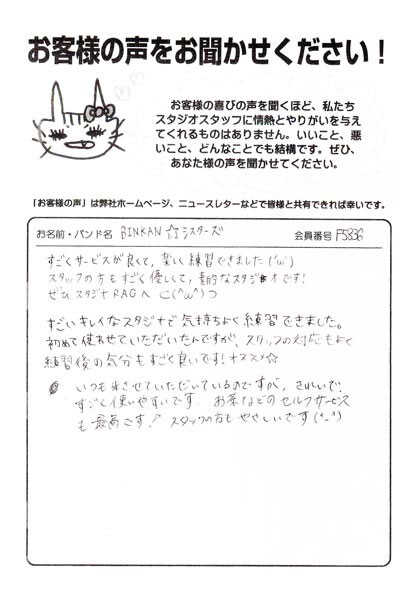 お客様の声をお聞かせください！
お客様の喜びの声を聞くほど、私たち
スタジオスタッフに情熱とやりがいを与え
てくれるものはありません。いいこと、悪
いこと、どんなことでも結構です。ぜひ、
あなた様の声を聞かせてください。
「お客様の声」は弊社ホームページ、ニュースレターなどで皆様と共有できれば幸いです。
お名前・バンド名 BINKAN☆シスターズ 会員番号 F5836
すごくサービスが良くて、楽しく練習できました('ω')
スタッフの方もすごく優しくて、素的なスタジオです!
ぜひスタジオRAGへ ⊂(^ω^)つ
すごいキレイなスタジオで気持ちよく練習できました。
初めて使わせていただいたんですが、スタッフの対応もよく
練習後の気分もすごく良いです!オススメ☆
いつも来させていただいているのですが、きれいで、
すごく使いやすいです。お茶などのセルフサービス
も最高です! スタッフの方もやさしいです(^-^)